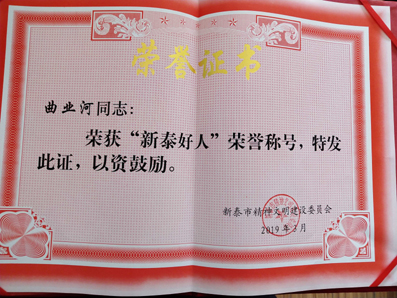 荣誉证书
曲业河同志：
荣获“新泰好人”荣誉称号，特发
此证，以资鼓励。
新泰市精神文明建设委员会
2019年3月